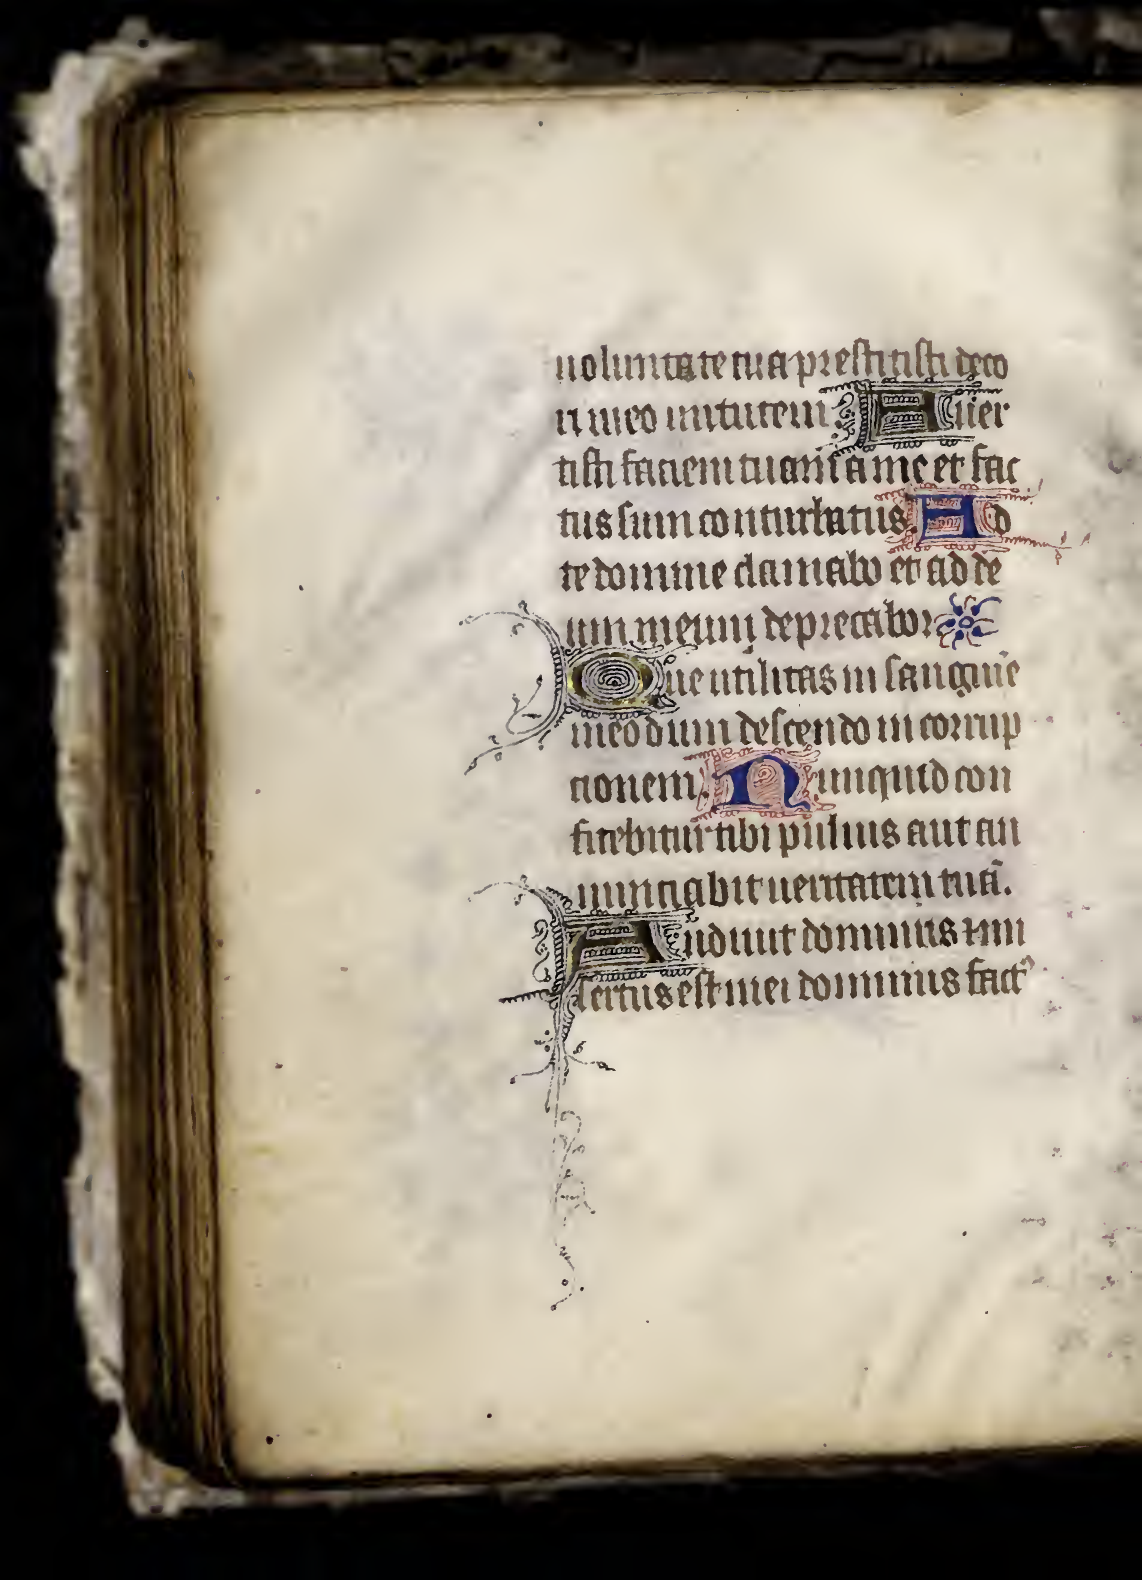 uoluntate tua prestitisti deco
ri meo uirtutem. Auer
tisti faciem tuam a me et fac
tus sum conturbatus. Ad
te domine clamabo et ad de
um meum deprecabor
Que utilitas in sanguine
meo dum descendo in corrup
cionem. Nunquid con
fitebitur tibi puluis aut an
nunciabit ueritatem tuā.
Audiuit dominus et mi
sertus est mei dominus factꝰ